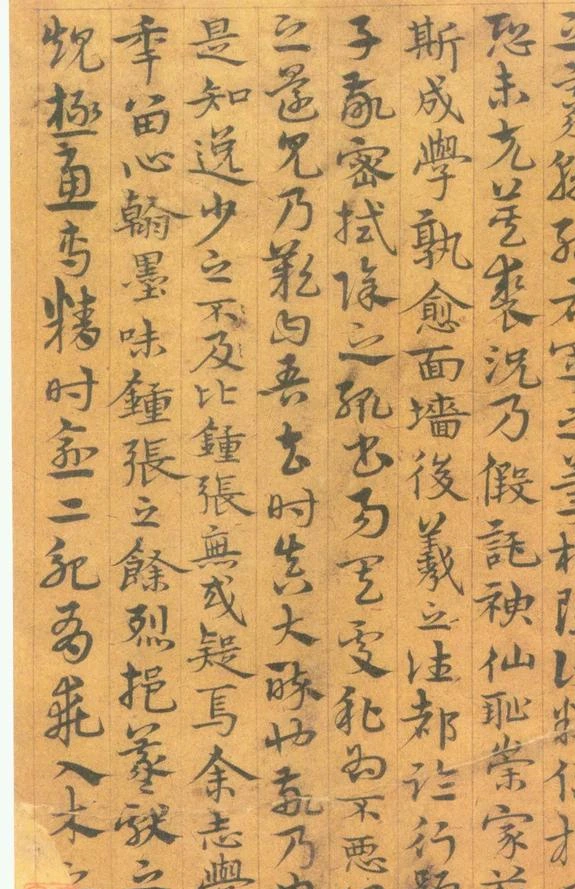 之豪翰紹右軍之筆札雖復粗傳楷
恐未克箕裘況乃假託神仙恥崇家範
斯成學孰愈面墻後羲之往都臨行題
子敬密拭除之輒書易其處私為不惡
之還見乃歎曰吾去時真大醉也敬乃內
是知逸少之不及比鍾張無或疑焉余志學
年留心翰墨味鍾張之餘烈挹羲獻之
規極慮專精時逾二紀有乖入木之